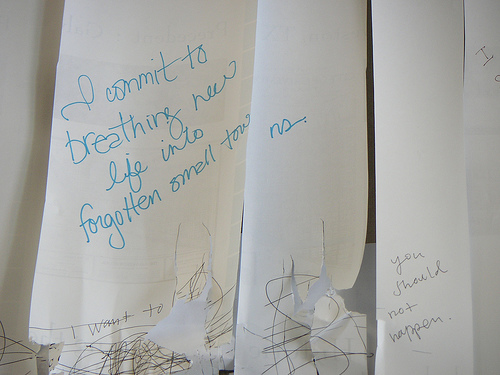 I commit to
breathing new
life into
forgotten small towns.
I want to
you
should
not
happen.
I